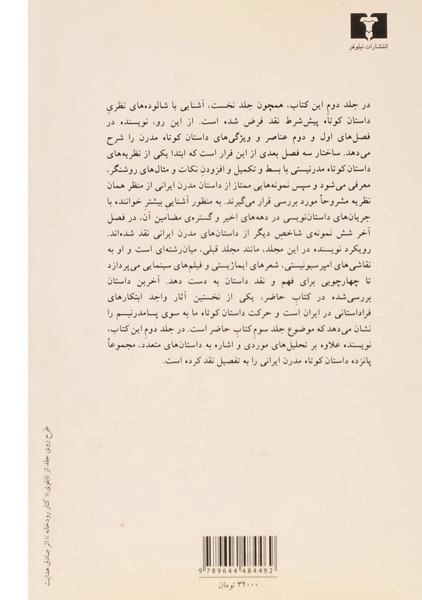 انتشارات نیلوفر
در جلد دوم این کتاب، همچون جلد نخست، آشنایی با شالوده‌های نظریِ
داستان کوتاه پیش‌شرط نقد فرض شده است. از این رو، نویسنده در
فصل‌های اول و دوم عناصر و ویژگی‌های داستان کوتاه مدرن را شرح
می‌دهد. ساختار سه فصل بعدی از این قرار است که ابتدا یکی از نظریه‌های
داستان کوتاه مدرنیستی با بسط و تکمیل و افزودنِ نکات و مثال‌های روشنگر،
معرفی می‌شود و سپس نمونه‌هایی ممتاز از داستان مدرن ایرانی از منظر همان
نظریه مشروحاً مورد بررسی قرار می‌گیرند. به منظور آشنایی بیشترِ خواننده با
جریان‌های داستان‌نویسی در دهه‌های اخیر و گستره‌ی مضامین آن، در فصل
آخر شش نمونه‌ی شاخصِ دیگر از داستان‌های مدرن ایرانی نقد شده‌اند.
رویکرد نویسنده در این مجلد، مانند مجلد قبلی، میان‌رشته‌ای است و او به
نقاشی‌های امپرسیونیستی، شعرهای ایماژیستی و فیلم‌های سینمایی می‌پردازد
تا چهارچوبی برای فهم و نقد داستان به دست دهد. آخرین داستان
بررسی‌شده در کتاب حاضر، یکی از نخستین آثار واجد ابتکارهای
فراداستانی در ایران است و حرکت داستان کوتاه ما به سوی پسامدرنیسم را
نشان می‌دهد که موضوع جلد سوم کتاب حاضر است. در جلد دوم این کتاب،
نویسنده علاوه بر تحلیل‌های موردی و اشاره به داستان‌های متعدد، مجموعاً
پانزده داستان کوتاه مدرن ایرانی را به تفصیل نقد کرده است.
طرح روی جلد از تابلوی «کنار رودخانه» اثر صادق هدایت
9 789644 484492
۳۲۰۰۰ تومان